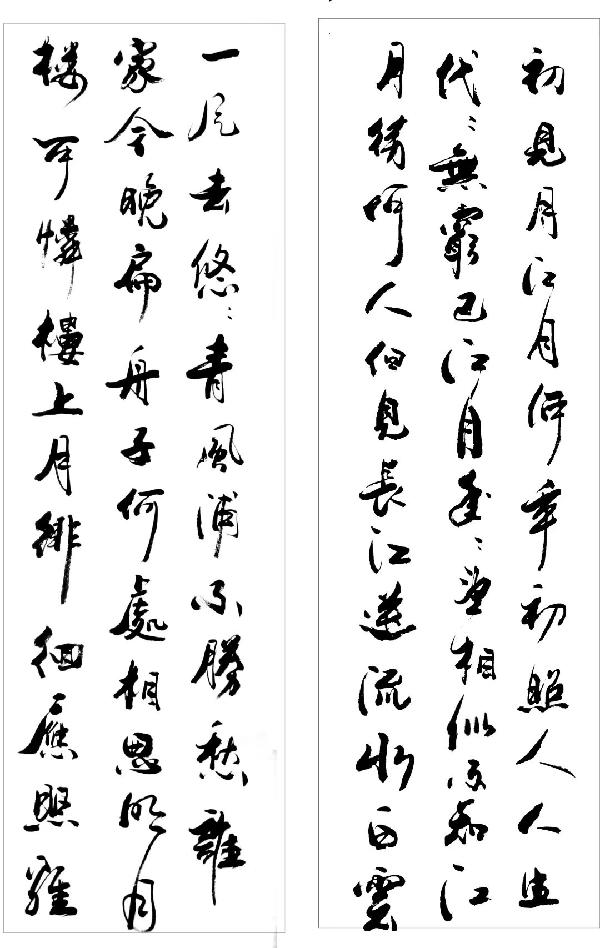 初見月江月何年初照人人生
代々無窮已江月年々望相似不知江
月待何人但見長江送流水白雲
一片去悠々青風浦不勝愁誰
家今晚扁舟子何處相思明月
楼可憐樓上月徘徊應照離